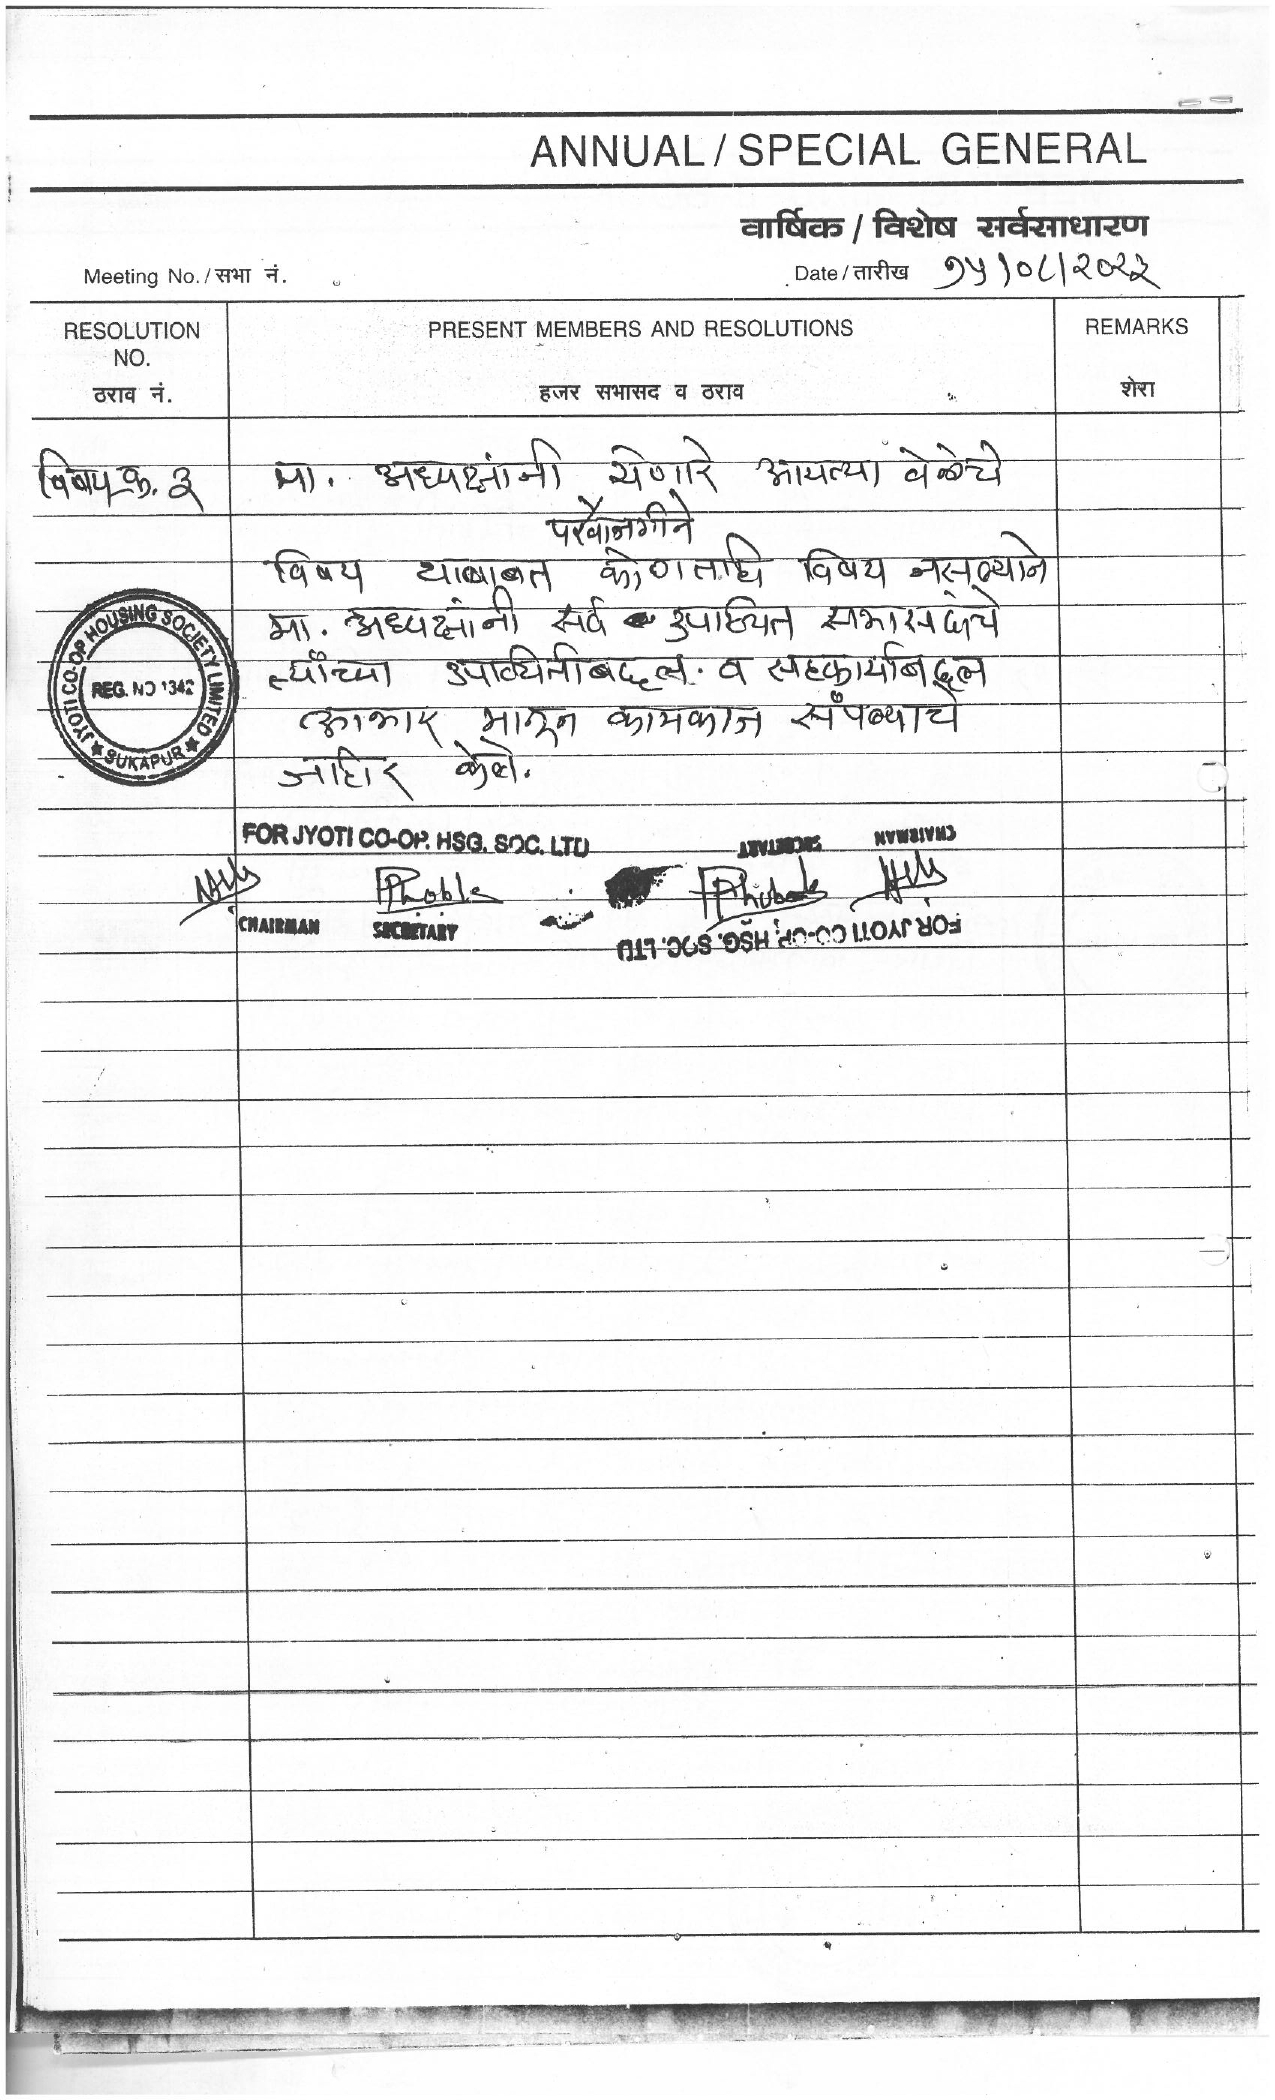 ANNUAL / SPECIAL GENERAL
वार्षिक / विशेष सर्वसाधारण
Meeting No. / सभा नं.
Date / तारीख १५/०८/२०२३
RESOLUTION NO. ठराव नं.
PRESENT MEMBERS AND RESOLUTIONS हजर सभासद व ठराव
REMARKS शेरा
विषय क्र. ३
मा. अध्यक्षांनी येणारे आयत्या वेळेचे
परवानगीने
विषय याबाबत कोणताहि विषय नसल्याने
मा. अध्यक्षांनी सर्व उपस्थित सभासदांचे
त्यांच्या उपस्थितीबद्दल व सहकार्याबद्दल
आभार मानून कामकाज संपल्याचे
जाहिर केले.
JYOTI CO-OP HOUSING SOCIETY LIMITED
REG. NO 1342
★ SUKAPUR ★
FOR JYOTI CO-OP. HSG. SOC. LTD
CHAIRMAN SECRETARY
FOR JYOTI CO-OP. HSG. SOC. LTD
CHAIRMAN SECRETARY